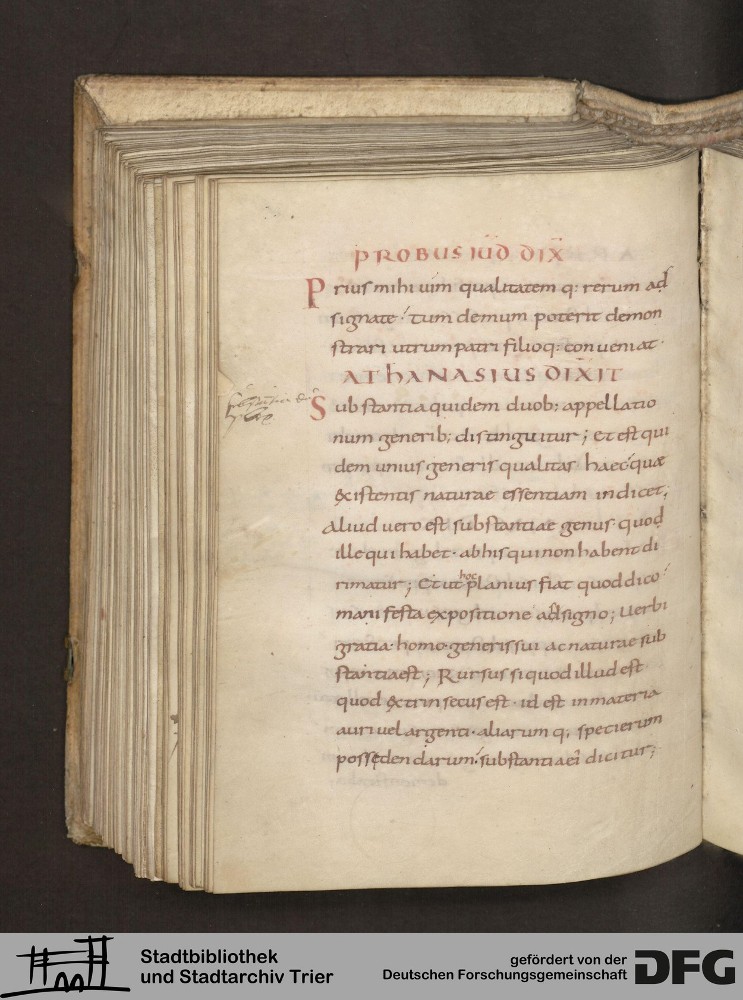 PROBUS IUD DIX
Prius mihi uim qualitatem q: rerum ad
signate tum demum poterit demon
strari utrum patri filioq: conueniat·
ATHANASIUS DIXIT
Substantia quidem duob; appellatio
num generib; distinguitur; Et est qui
dem unius generis qualitas haec quae
existentis naturae essentiam indicet;
Aliud uero est substantiae genus· quod
ille qui habet· ab his qui non habent di
rimatur; Et ut hoc planius fiat quod dico
manifesta expositione adsigno; Uerbi
gratia· homo generis sui ac naturae sub
stantia est; Rursus si quod illud est
quod extrinsecus est· id est in materia
auri uel argenti· aliarum q; specierum
possedendarum substantia ei dicitur;
Stadtbibliothek
und Stadtarchiv Trier
gefördert von der
Deutschen Forschungsgemeinschaft
DFG